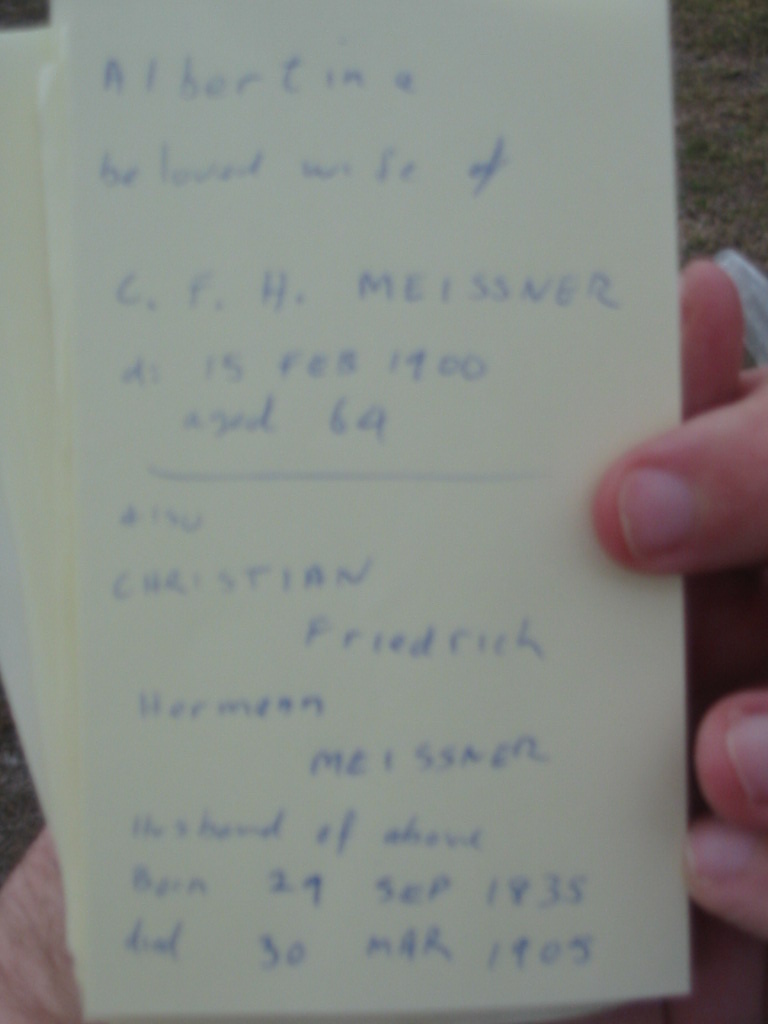 Albertine
beloved wife of
C. F. H. MEISSNER
d: 15 FEB 1900
aged 64
also
CHRISTIAN
Friedrich
Hermann
MEISSNER
Husband of above
Born 29 SEP 1835
died 30 MAR 1905